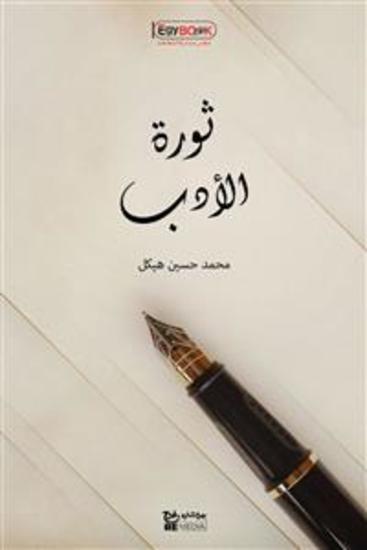 EGYBOOK
ثورة
الأدب
محمد حسين هيكل
MEDIA